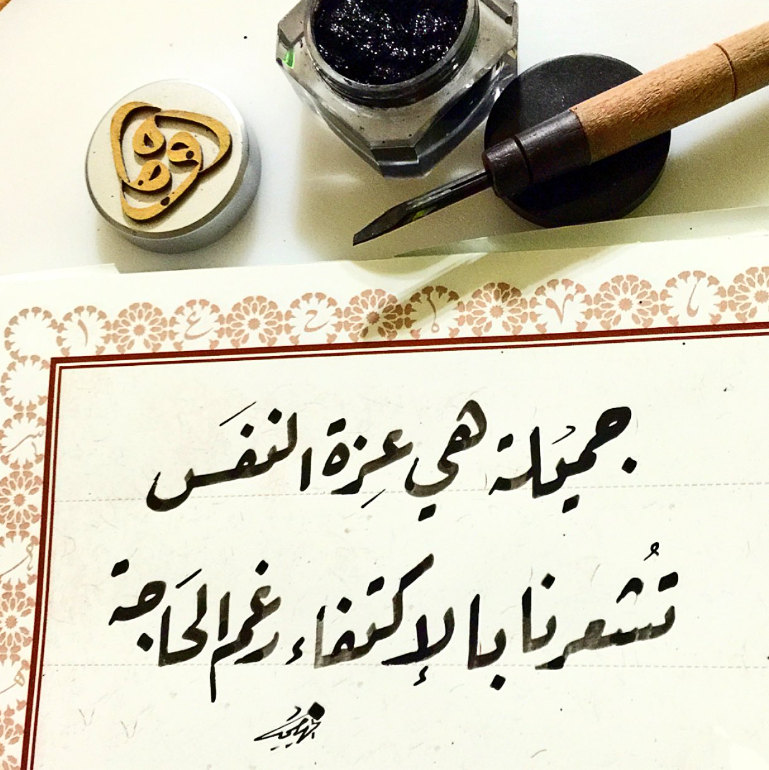 جميلة هي عِزة النفَس
تُشعرنا بالإكتفاء رغم الحَاجة